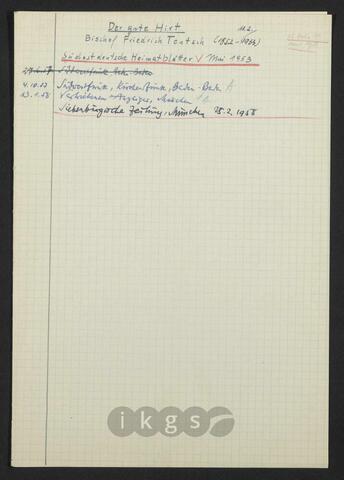 Der gute Hirt
Bischof Friedrich Teutsch (1852–1933)
Südostdeutsche Heimatblätter V Mai 1953
4.10.53 Südwestfunk, Kirchenfunk, Baden-Baden
Vertriebenen-Anzeiger, München
Siebenbürgische Zeitung, München 28.2.1958
ikgs